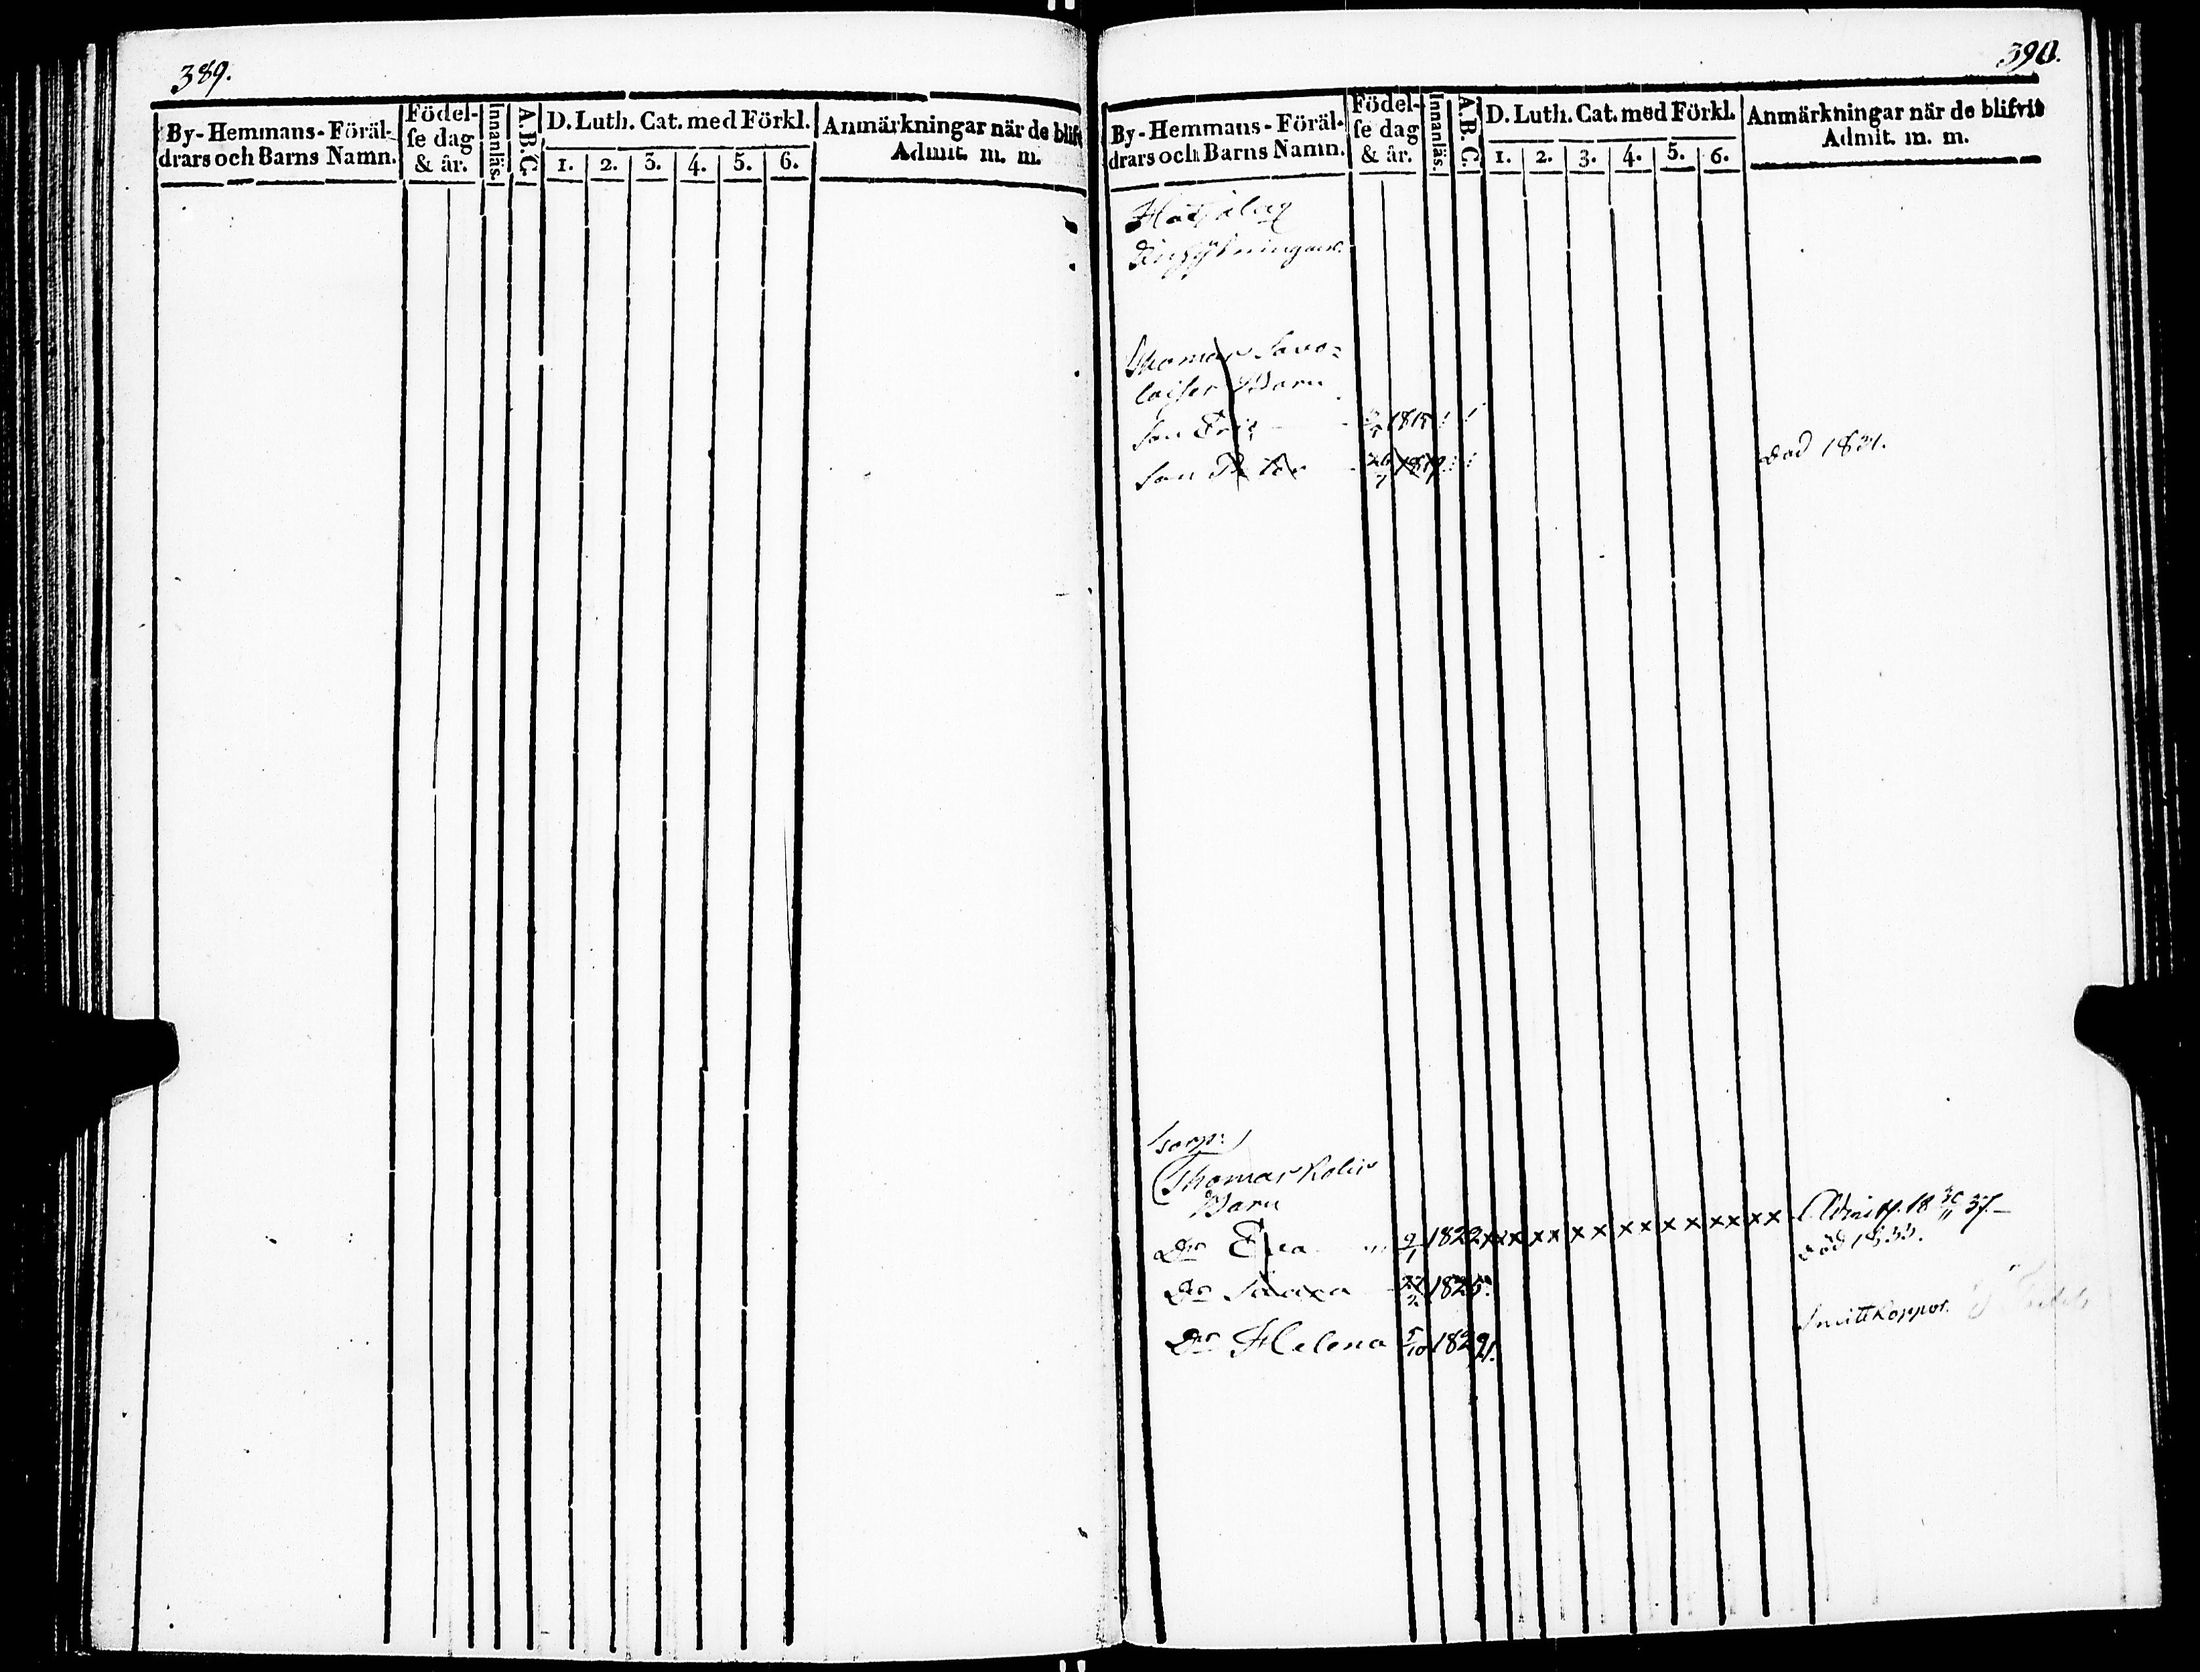 389.
By-Hemmans-Föräl-
drars och Barns Namn.
Födel-
se dag
& år.
Innanläs.
A.B.C.
D. Luth. Cat. med Förkl.
1. 2. 3. 4. 5. 6.
Anmärkningar när de blifv
Admit. m. m.
390.
By-Hemmans-Föräl-
drars och Barns Namn.
Födel-
se dag
& år.
Innanläs.
A.B.C.
D. Luth. Cat. med Förkl.
1. 2. 3. 4. 5. 6.
Anmärkningar när de blifvit
Admit. m. m.
Thomas Savo=
laiser Barn
Son Eric 1815
Son Peter 1819 död 1831.
Thomas Kolis
Barn
Dr Eva 9/1 1822 x x x x x x x x x x x x x x x Admitt. 18 30/11 37.
Dr 1825. död 1833.
Dr Helena 5/10 1829. Smittkoppor.